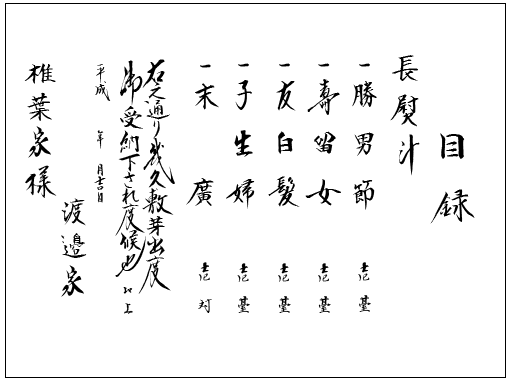 目録
長熨斗
一 勝男節 壱臺
一 壽留女 壱臺
一 友白髪 壱臺
一 子生婦 壱臺
一 末廣 壱対
右之通り幾久敷芽出度
御受納下され度候也 以上
平成 年 月吉日
渡邉家
椎葉家様